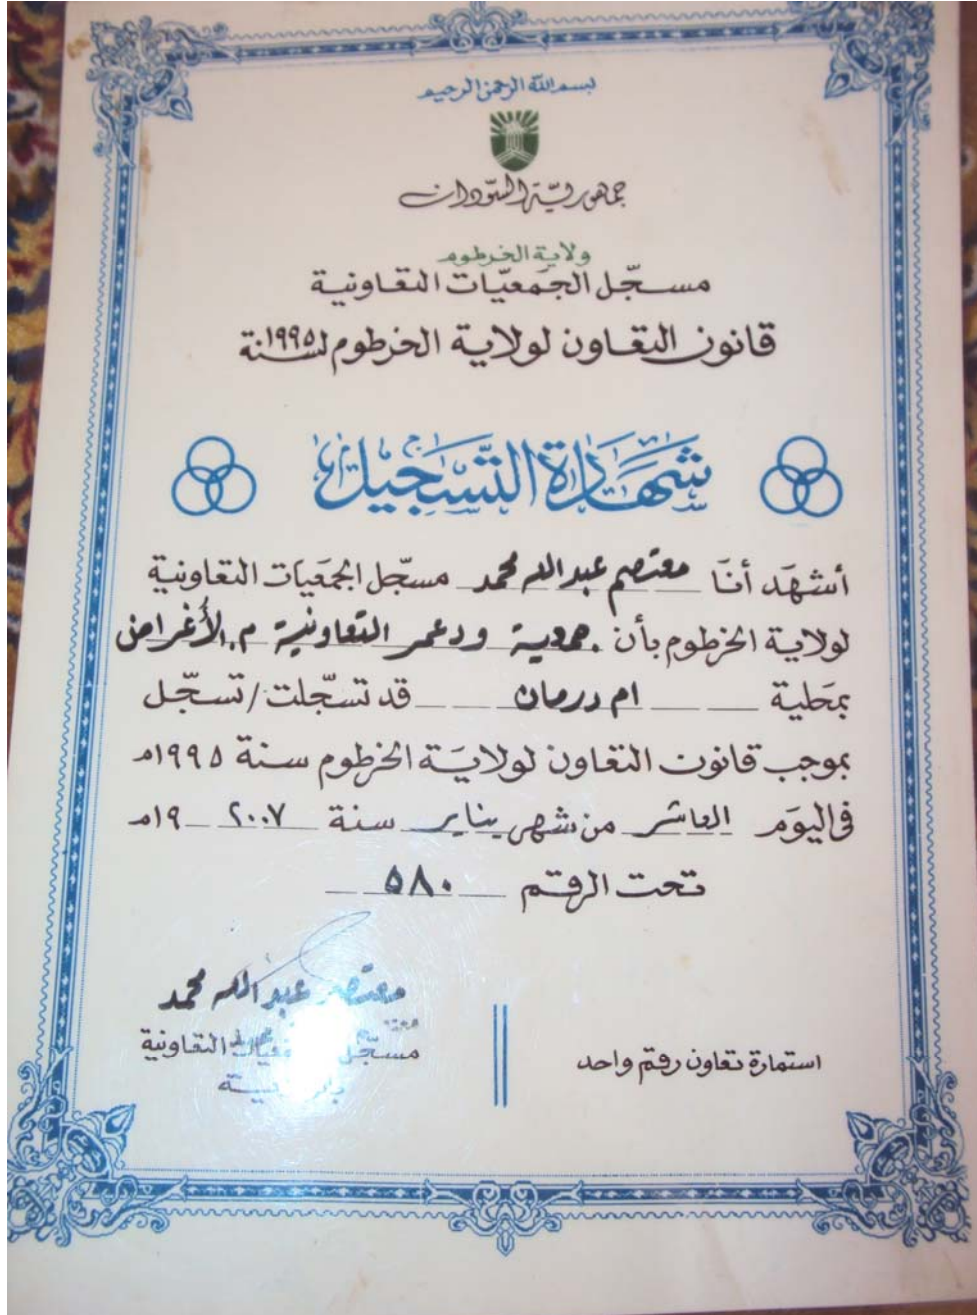 بسم الله الرحمن الرحيم
جمهورية السودان
ولاية الخرطوم
مسجّل الجمعيّات التعاونية
قانون التعاون لولاية الخرطوم لسنة ١٩٩٥
شهادة التسجيل
أشهد أنا معتصم عبد الله محمد مسجّل الجمعيات التعاونية
لولاية الخرطوم بأن جمعية ود عمر التعاونية م. الأغراض
بمحلية ام درمان قد تسجّلت/تسجّل
بموجب قانون التعاون لولاية الخرطوم سنة ١٩٩٥م
في اليوم العاشر من شهر يناير سنة ٢٠٠٧ ١٩م
تحت الرقم ٥٨٠
معتصم عبد الله محمد
مسجّل الجمعيات التعاونية
استمارة تعاون رقم واحد